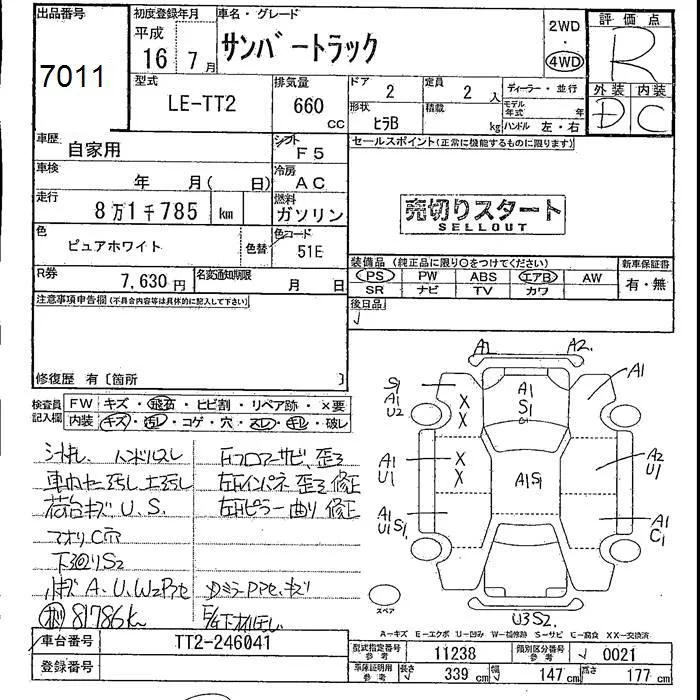 出品番号
7011
初度登録年月
平成
16 7月
車名・グレード
サンバートラック
2WD
・
4WD
評価点
R
外装 内装
D C
型式
LE-TT2
排気量
660
CC
ドア
2
定員
2 人
形状
ヒラB
積載
kg
ディーラー・並行
モデル年式 年
ハンドル 左・右
車歴
自家用
シフト
F5
車検
年 月( 日)
冷房
AC
走行
8万1千785 km
燃料
ガソリン
色
ピュアホワイト
色替
色コード
51E
R券
7,630円
名変通知期限
月 日
セールスポイント(正常に機能するものに限ります)
売切りスタート
SELLOUT
装備品(純正品に限り○をつけてください)
新車保証書
PS PW ABS エアB AW
SR ナビ TV カワ
有・無
後日品
注意事項申告欄(不具合内容等は具体的に記入して下さい)
修復歴 有〔箇所 〕
検査員
記入欄
FW キズ・飛石・ヒビ割・リペア跡・×要
内装 キズ・汚レ・コゲ・穴・スレ・キレ・破レ
荷台キズ U. S.
アオリ C穴
下廻りS2
小キズ A. U. W2
81786km
左右インパネ 歪ミ 修正
左右ピラー 曲り 修正
A1 A2.
S1
A1
U2
A1
S1
A1
X
X
A1
U1
X
X
A1S1
A2
U1
A1
U1 S1
A1
C1
スペア
U3S2.
A-キズ E-エクボ U-凹み W-補修跡 S-サビ C-腐食 XX-交換済
車台番号
TT2-246041
登録番号
型式指定番号
参考
11238
類別区分番号
参考
0021
車庫証明用
参考
長さ
339 cm
幅
147 cm
高さ
177 cm